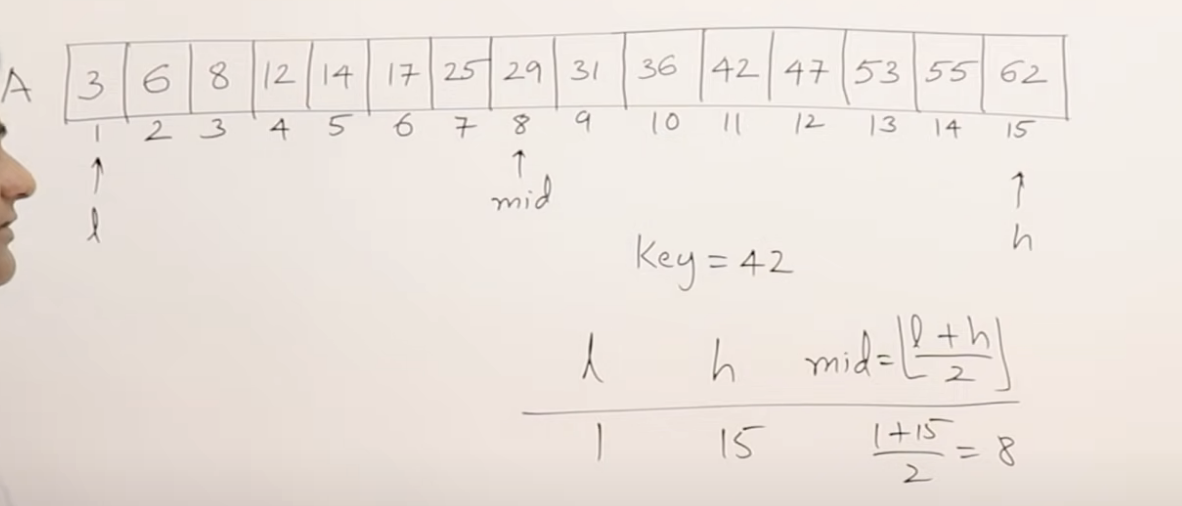 A 3 6 8 12 14 17 25 29 31 36 42 47 53 55 62
1 2 3 4 5 6 7 8 9 10 11 12 13 14 15
↑ ↑ ↑
l mid h
Key = 42
l h mid = ⌊(l + h)/2⌋
1 15 (1+15)/2 = 8